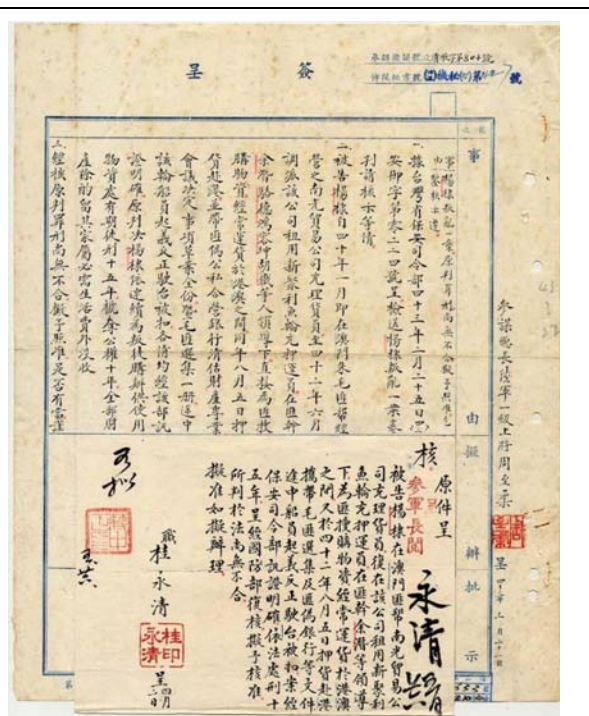 簽呈
事由
擬辦
批示
參謀總長陸軍一級上將周至柔
事由楊樣叛亂一案原判罪刑尚無不合擬予照准乞鑒核示遵
一、據台灣省保安司令部四十三年二月二十五日
安御字第零二二四號呈檢送楊樣叛亂一案卷
判請核示等情
二、被告楊樣自四十年一月即在澳門朱毛匪幫經
營之南光貿易公司充理貨員至四十二年六月
調派該公司租用新聚利魚輪充押運員在匪幹
余潛駱德鴻容坤胡鐵等人領導下直接為匪投
購物資經常運貨於港澳之間同年八月五日押
貨赴港並帶匪偽公私合營銀行清估財產專業
會議決定事項草案全份暨毛匪選集一冊途中
該輪船員起義反正駛台被扣各情均經該部訊
證明確原判決楊樣依連續為叛徒購辦供使用
物資處有期徒刑十五年褫奪公權十年全部財
產除酌留其家屬必需生活費外沒收
三、經核原判罪刑尚無不合擬予照准是否有當謹
核
原件呈
參軍長閱
被告楊樣在澳門匪幫南光貿易公
司充理貨員後在該公司租用新聚利
魚輪充押運員在匪幹余潛等領導
下為匪搜購物資經常運貨於港澳
之間又於四十二年八月五日押貨赴港
攜帶毛匪選集及匪偽銀行等文件
途中船員起義反正駛台被扣案經
保安司令部訊證明確依法處刑十
五年呈經國防部復核擬予核准
所判於法尚無不合
擬准如擬辦理
職桂永清
桂印永清
呈